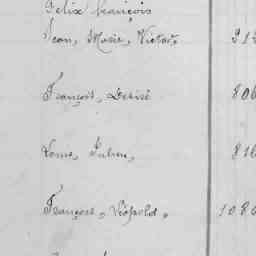 Felix François
Jean, Marie, Victor, 212
François, Désiré 806
Louis, Julien, 816
François, Léopold, 1086